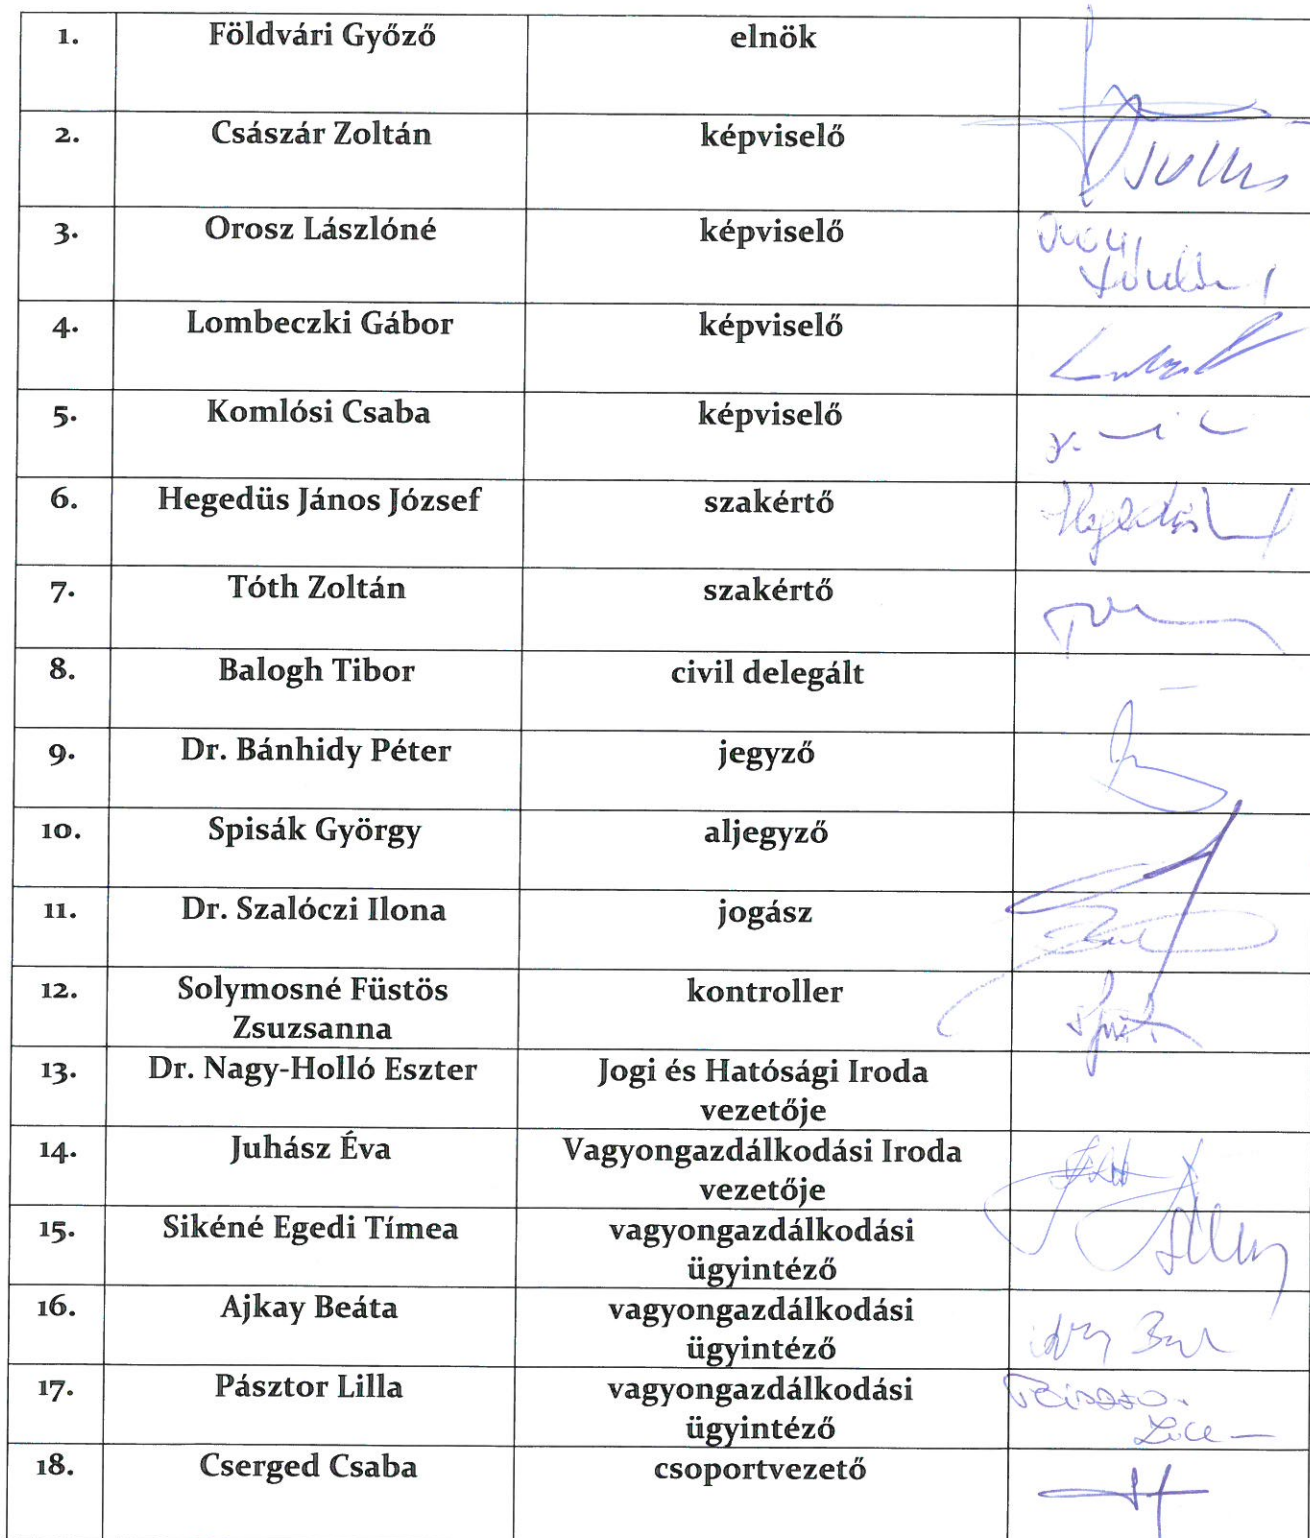 1. Földvári Győző elnök
2. Császár Zoltán képviselő
3. Orosz Lászlóné képviselő
4. Lombeczki Gábor képviselő
5. Komlósi Csaba képviselő
6. Hegedüs János József szakértő
7. Tóth Zoltán szakértő
8. Balogh Tibor civil delegált
9. Dr. Bánhidy Péter jegyző
10. Spisák György aljegyző
11. Dr. Szalóczi Ilona jogász
12. Solymosné Füstös kontroller
Zsuzsanna
13. Dr. Nagy-Holló Eszter Jogi és Hatósági Iroda
vezetője
14. Juhász Éva Vagyongazdálkodási Iroda
vezetője
15. Sikéné Egedi Tímea vagyongazdálkodási
ügyintéző
16. Ajkay Beáta vagyongazdálkodási
ügyintéző
17. Pásztor Lilla vagyongazdálkodási
ügyintéző
18. Cserged Csaba csoportvezető